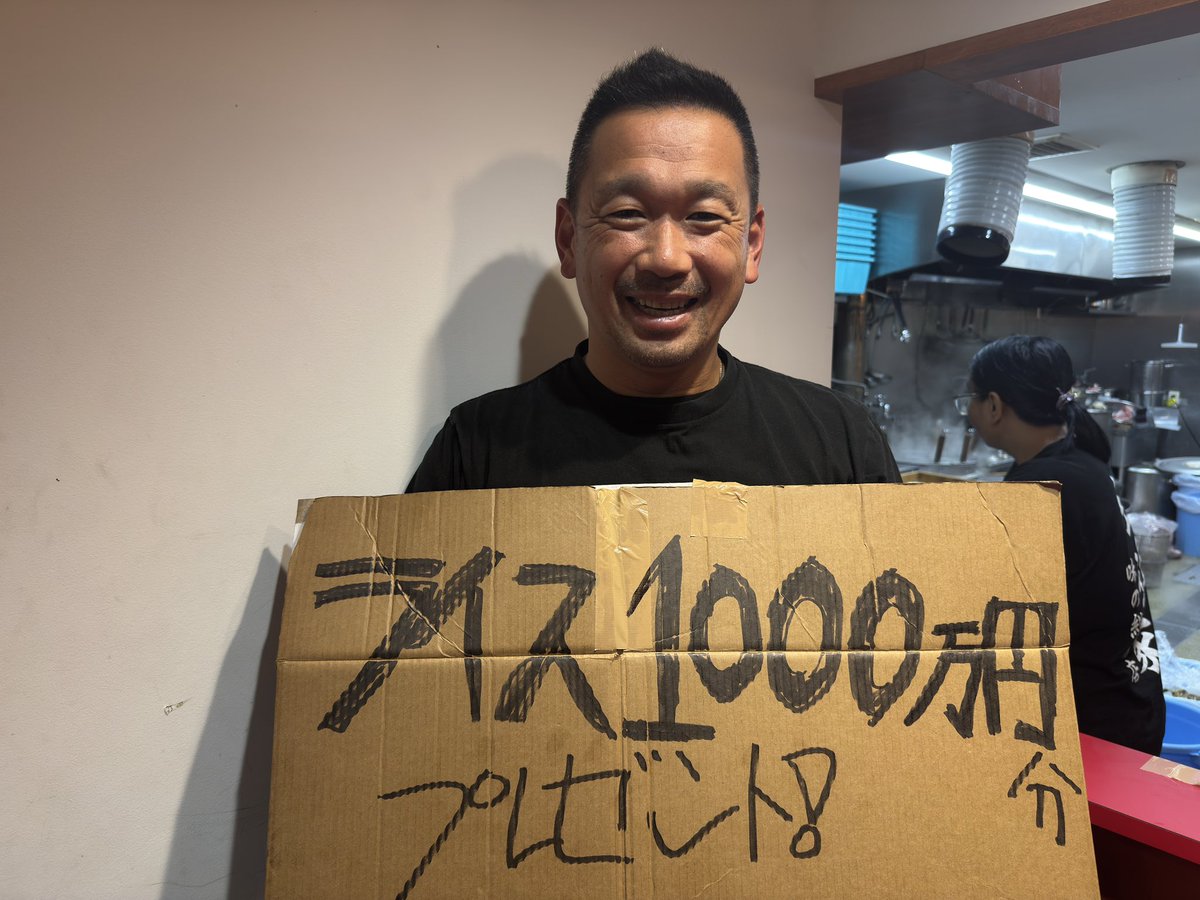 ライス1000万円
分
プレゼント!